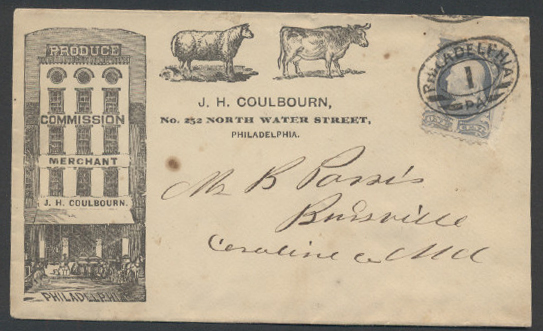 PRODUCE
COMMISSION
MERCHANT
J. H. COULBOURN.
PHILADELPHIA
J. H. COULBOURN,
No. 252 NORTH WATER STREET,
PHILADELPHIA.
PHILADELPHIA
1
PA.
Mr B
Burrsville
Caroline Co Md